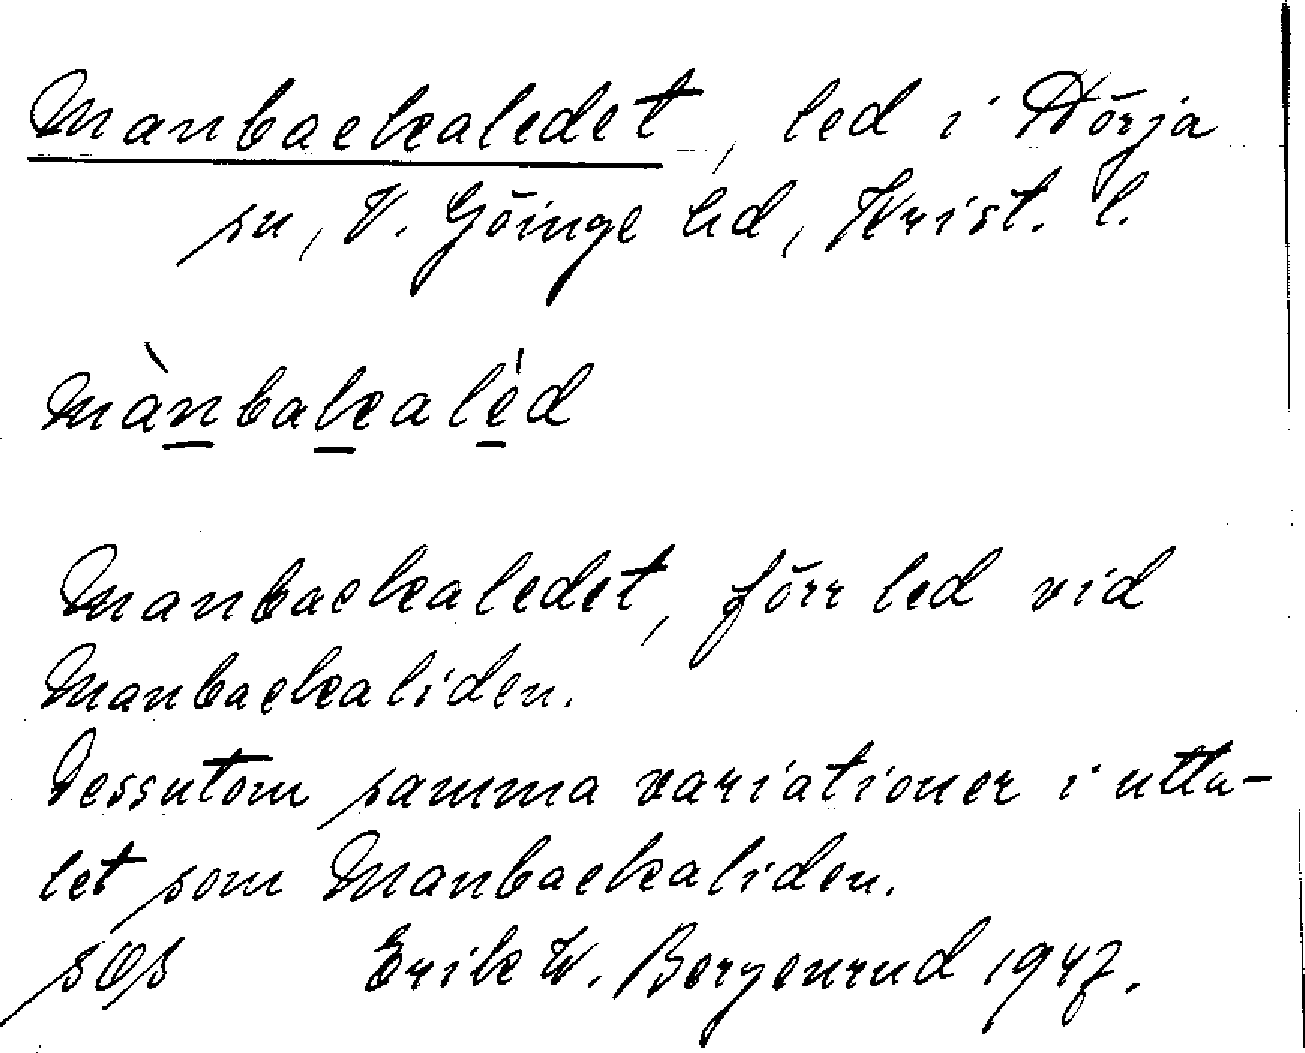 Manbackaledet, led i Nörja
sn, V. Göinge hd, Krist. l.
Mànbakalèd
Manbackaledet, förr led vid
Manbackaliden.
Dessutom samma variationer i utta-
let som Manbackaliden.
Erik W. Bergenrud 1947.